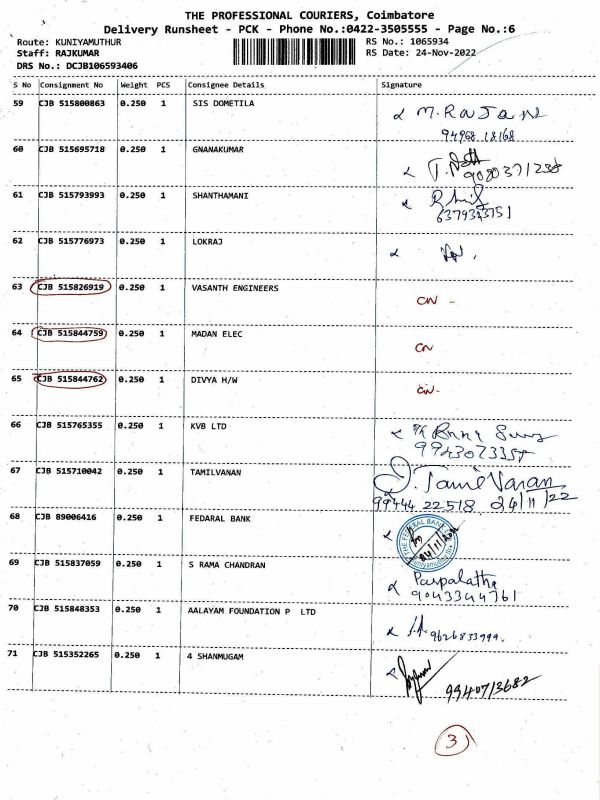 THE PROFESSIONAL COURIERS, Coimbatore
Delivery Runsheet - PCK - Phone No.:0422-3505555 - Page No.:6
Route: KUNIYAMUTHUR RS No.: 1065934
Staff: RAJKUMAR RS Date: 24-Nov-2022
DRS No.: DCJB106593406
S No Consignment No Weight PCS Consignee Details Signature
59 CJB 515800863 0.250 1 SIS DOMETILA M. RAJAN
94968 18168
60 CJB 515695718 0.250 1 GNANAKUMAR
9080371238
61 CJB 515793993 0.250 1 SHANTHAMANI
6379343751
62 CJB 515776973 0.250 1 LOKRAJ
63 CJB 515826919 0.250 1 VASANTH ENGINEERS CN -
64 CJB 515844759 0.250 1 MADAN ELEC CN
65 CJB 515844762 0.250 1 DIVYA H/W CN-
66 CJB 515765355 0.250 1 KVB LTD
67 CJB 515710042 0.250 1 TAMILVANAN J. TamilVanan
99444 22518 24/11/22
68 CJB 89006416 0.250 1 FEDARAL BANK THE FEDERAL BANK
24/11/
69 CJB 515837059 0.250 1 S RAMA CHANDRAN Puspalatha
9043344761
70 CJB 515848353 0.250 1 AALAYAM FOUNDATION P LTD 9626833999.
71 CJB 515352265 0.250 1 4 SHANMUGAM
9940713682
3